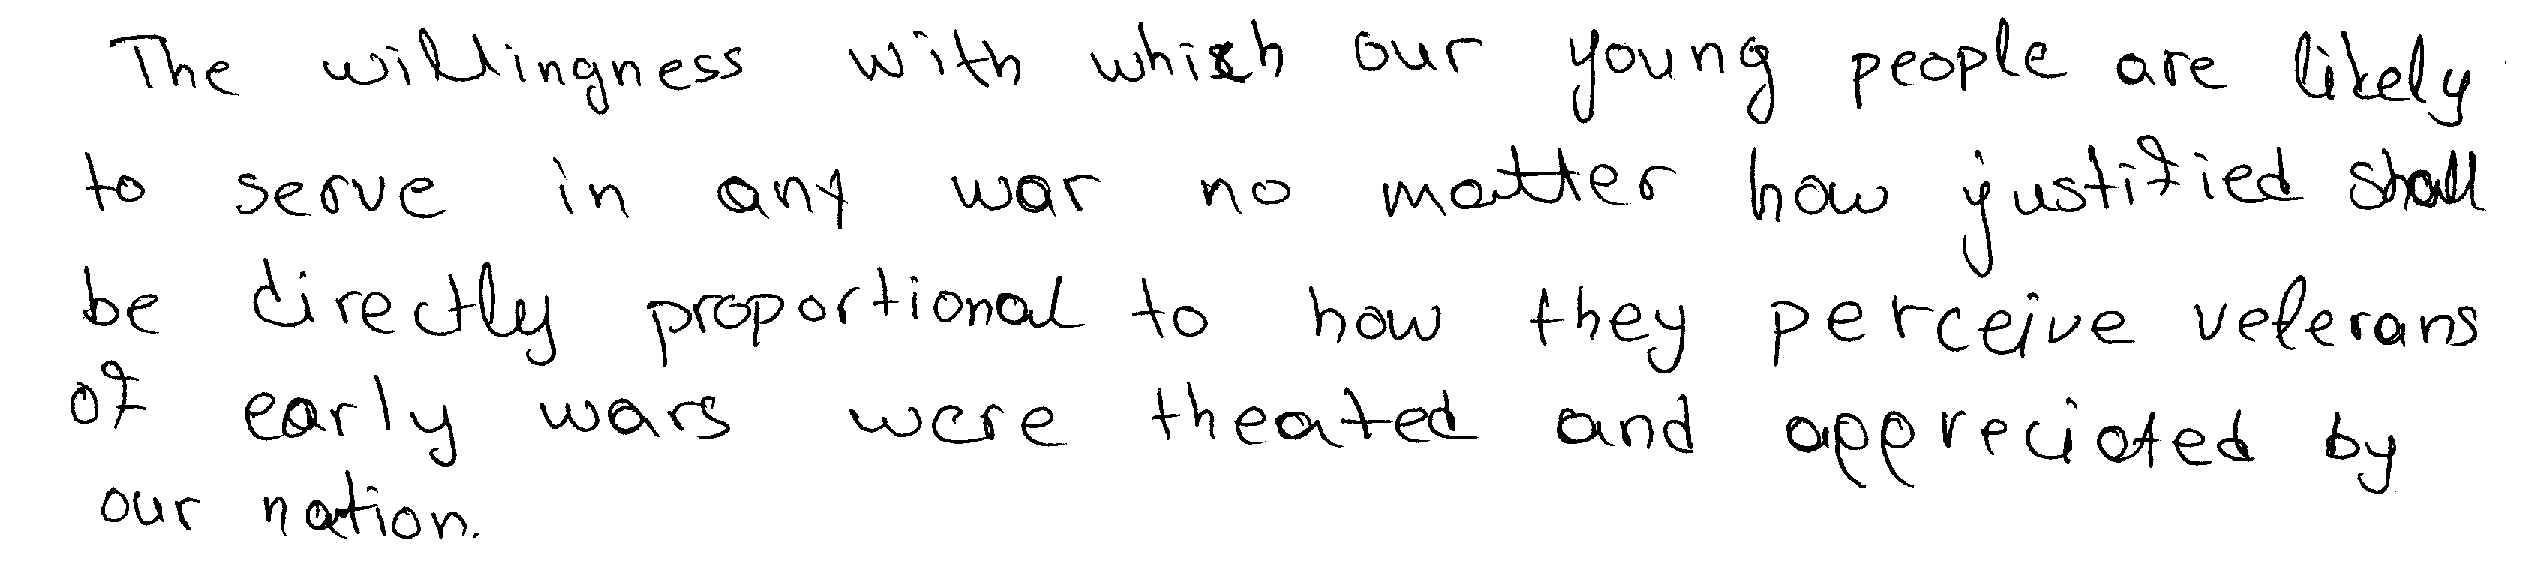 The willingness with which our young people are likely
to serve in any war no matter how justified shall
be directly proportional to how they perceive veterans
of early wars were theated and appreciated by
our nation.